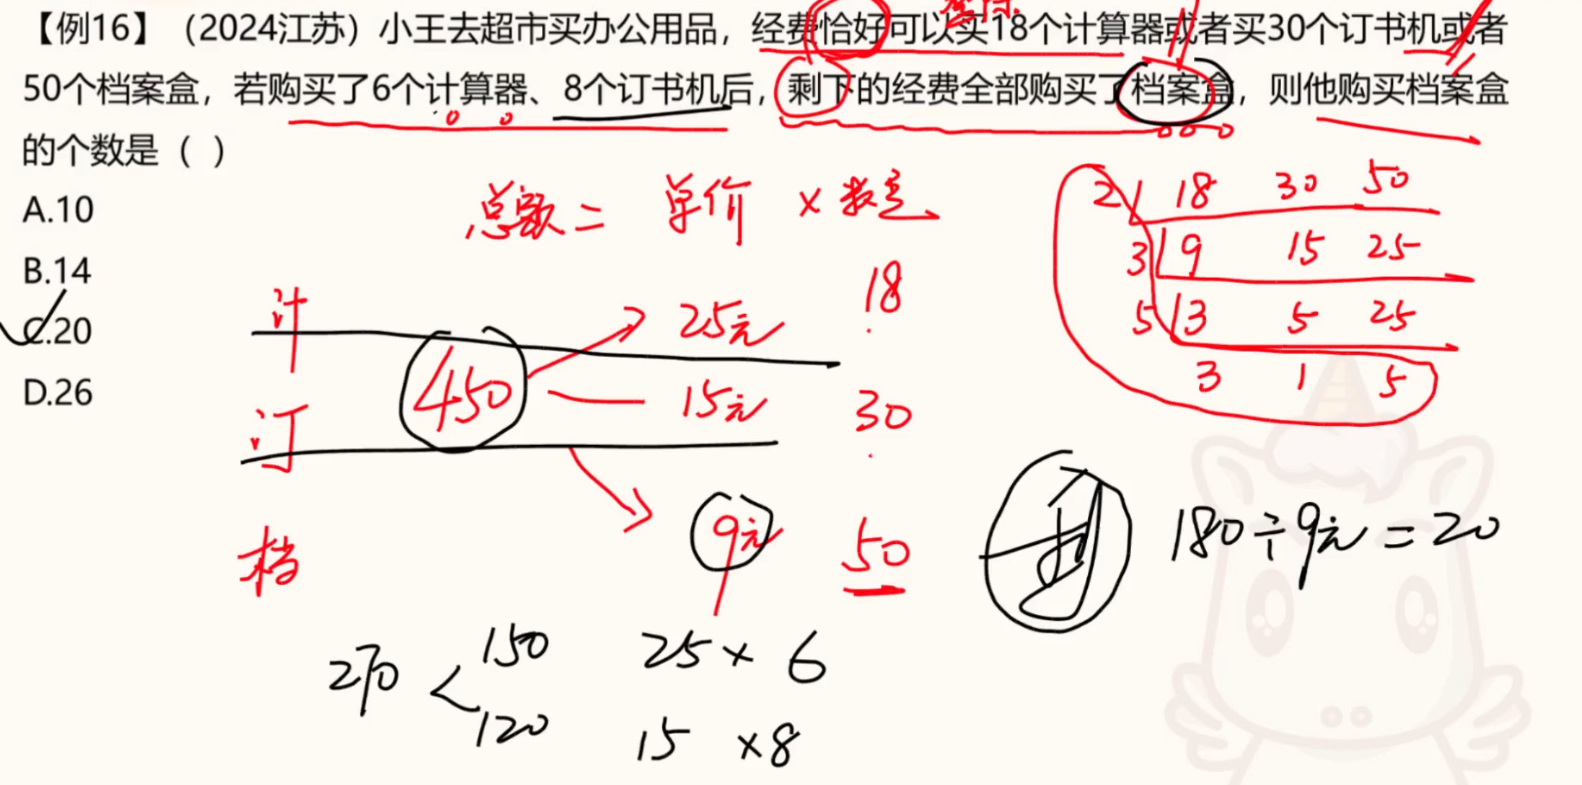 【例16】（2024江苏）小王去超市买办公用品，经费恰好可以买18个计算器或者买30个订书机或者
50个档案盒，若购买了6个计算器、8个订书机后，剩下的经费全部购买了档案盒，则他购买档案盒
的个数是（ ）
A.10
B.14
C.20
D.26
总额= 单价 × 数量
计 25元 18
450
订 15元 30
档 9元 50
2 18 30 50
3 9 15 25
5 3 5 25
3 1 5
180÷9元=20
270 < 150 25×6
120 15×8